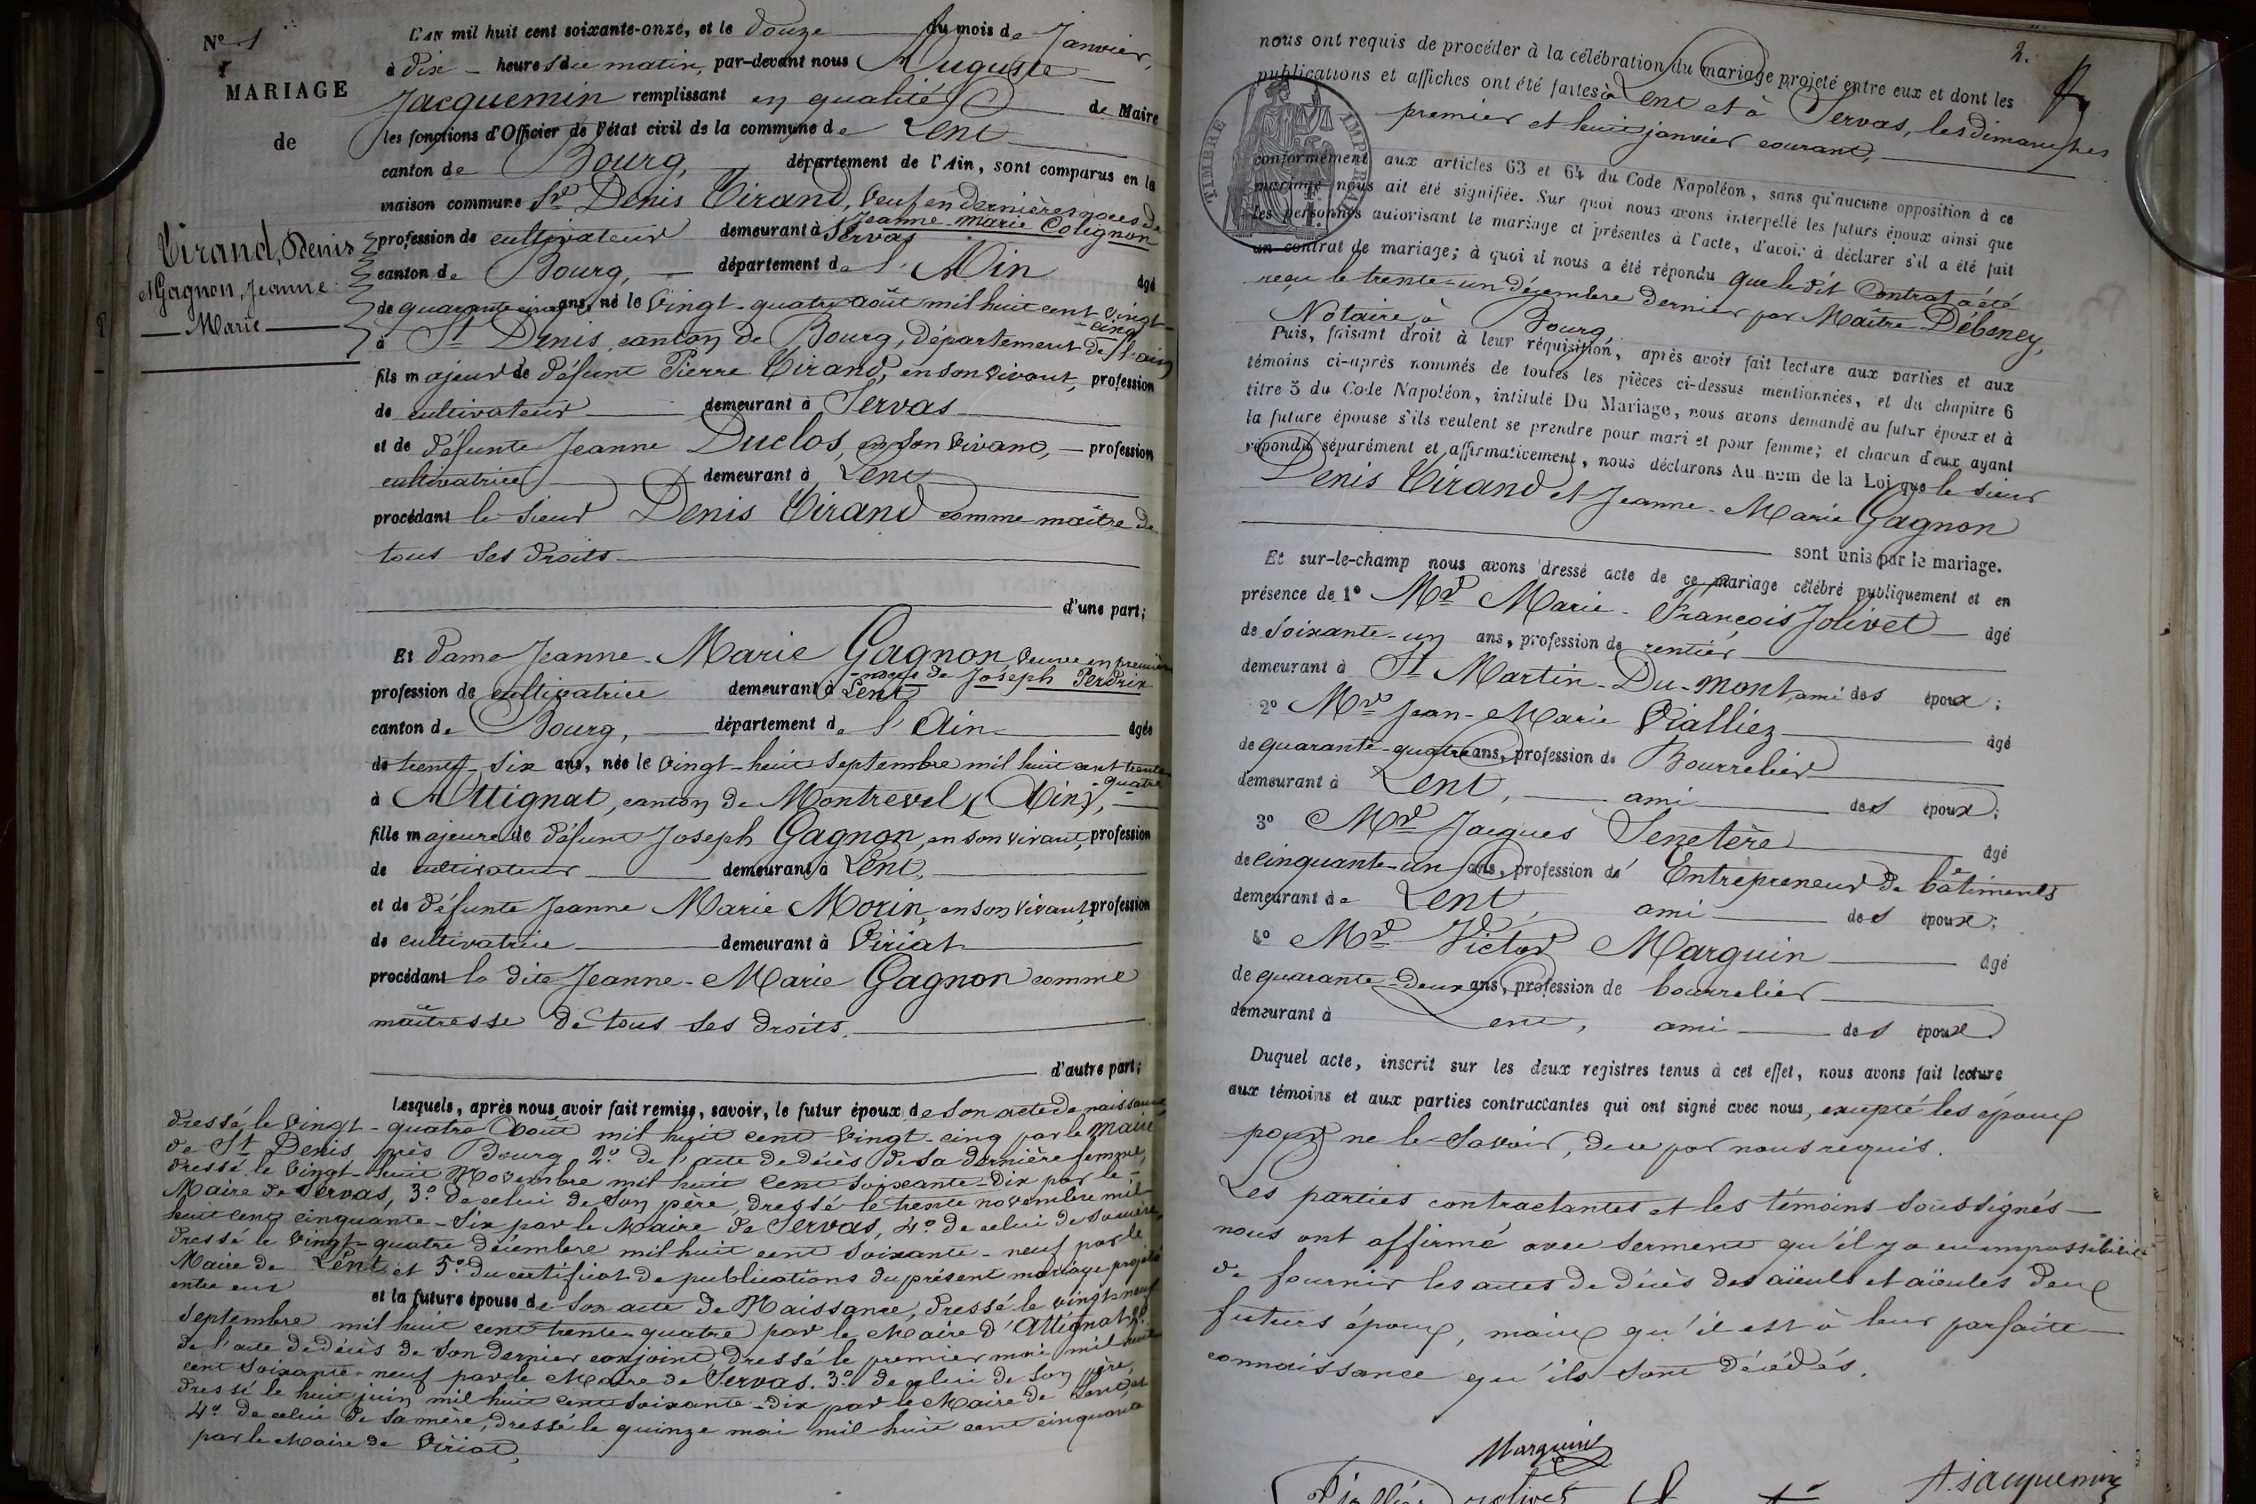 N° 1
MARIAGE
de
Tirand, Denis
et Gagnon, Jeanne
Marie
L'AN mil huit cent soixante-onze, et le douze du mois de Janvier,
à dix heures du matin, par-devant nous Auguste
Jacquemin remplissant en qualité de Maire
les fonctions d'Officier de l'état civil de la commune de Lent
canton de Bourg, département de l'Ain, sont comparus en la
maison commune Sr Denis Tirand, veuf en dernières noces de
Jeanne-Marie Colignon
profession de cultivateur demeurant à Servas
canton de Bourg, département de l'Ain âgé
de quarante cinq ans, né le vingt-quatre août mil huit cent vingt-
cinq
à St Denis, canton de Bourg, département de l'ain
fils majeur de défunt Pierre Tirand, en son vivant, profession
de cultivateur demeurant à Servas
et de défunte Jeanne Duclos, en son vivant, profession
cultivatrice demeurant à Lent
procédant le sieur Denis Tirand comme maître de
tous ses droits
d'une part;
Et dame Jeanne-Marie Gagnon, veuve en premières
noces de Joseph Perdrix
profession de cultivatrice demeurant à Lent
canton de Bourg, département de l'Ain âgée
de trente-six ans, née le vingt-huit septembre mil huit cent trente
-quatre
à Attignat, canton de Montrevel (Ain),
fille majeure de défunt Joseph Gagnon, en son vivant, profession
de cultivateur demeurant à Lent,
et de défunte Jeanne Marie Morin, en son vivant, profession
de cultivatrice demeurant à Viriat
procédant la dite Jeanne-Marie Gagnon comme
maîtresse de tous ses droits.
d'autre part;
Lesquels, après nous avoir fait remise, savoir, le futur époux de son acte de naissance
dressé le vingt-quatre Août mil huit cent vingt-cinq par le Maire
de St Denis près Bourg 2° de l'acte de décès de sa dernière femme,
dressé le vingt-huit Novembre mil huit cent soixante-dix par le
Maire de Servas, 3° de celui de son père, dressé le trente novembre mil
huit cent cinquante-six par le Maire de Servas, 4° de celui de sa mère,
dressé le vingt-quatre décembre mil huit cent soixante-neuf par le
Maire de Lent et 5° du certificat de publications du présent mariage projeté
entre eux
et la future épouse de son acte de Naissance, dressé le vingt-neuf
septembre mil huit cent trente-quatre par le Maire d'Attignat, 2°
de l'acte de décès de son dernier conjoint, dressé le premier mai mil huit
cent soixante-neuf par le Maire de Servas. 3° de celui de son père,
dressé le huit juin mil huit cent soixante-dix par le Maire de Lent, et
4° de celui de sa mère, dressé le quinze mai mil huit cent cinquante
par le Maire de Viriat,
2.
nous ont requis de procéder à la célébration du mariage projeté entre eux et dont les
publications et affiches ont été faites à Lent et à Servas, les dimanches
premier et huit janvier courant,
TIMBRE IMPERIAL
conformément aux articles 63 et 64 du Code Napoléon, sans qu'aucune opposition à ce
mariage nous ait été signifiée. Sur quoi nous avons interpellé les futurs époux ainsi que
les personnes autorisant le mariage et présentes à l'acte, d'avoir à déclarer s'il a été fait
un contrat de mariage; à quoi il nous a été répondu que le dit Contrat a été
reçu le trente-un décembre dernier par Maître Débeney,
Notaire à Bourg
Puis, faisant droit à leur réquisition, après avoir fait lecture aux parties et aux
témoins ci-après nommés de toutes les pièces ci-dessus mentionnées, et du chapitre 6
titre 5 du Code Napoléon, intitulé Du Mariage, nous avons demandé au futur époux et à
la future épouse s'ils veulent se prendre pour mari et pour femme; et chacun d'eux ayant
répondu séparément et affirmativement, nous déclarons Au nom de la Loi que le sieur
Denis Tirand et Jeanne-Marie Gagnon
sont unis par le mariage.
Et sur-le-champ nous avons dressé acte de ce mariage célébré publiquement et en
présence de 1° Mr Marie-François Jolivet âgé
de soixante-un ans, profession de rentier
demeurant à St Martin-Du-Mont, ami des époux;
2° Mr Jean-Marie Vialliez âgé
de quarante-quatre ans, profession de Bourrelier
demeurant à Lent, ami des époux;
3° Mr Jacques Senetère âgé
de cinquante-un ans, profession de Entrepreneur de bâtiments
demeurant de Lent, ami des époux;
4° Mr Victor Marguin âgé
de quarante-deux ans, profession de bourrelier
demeurant à Lent, ami des époux
Duquel acte, inscrit sur les deux registres tenus à cet effet, nous avons fait lecture
aux témoins et aux parties contractantes qui ont signé avec nous, excepté les époux
pour ne le savoir, de ce par nous requis.
Les parties contractantes et les témoins soussignés
nous ont affirmé avec serment qu'il y a eu impossibilité
de fournir les actes de décès des aïeuls et aïeules deux
futurs époux, mais qu'il est à leur parfaite
connaissance qu'ils sont décédés.
Marguin
Vialliez Jolivet
A. Jacquemin